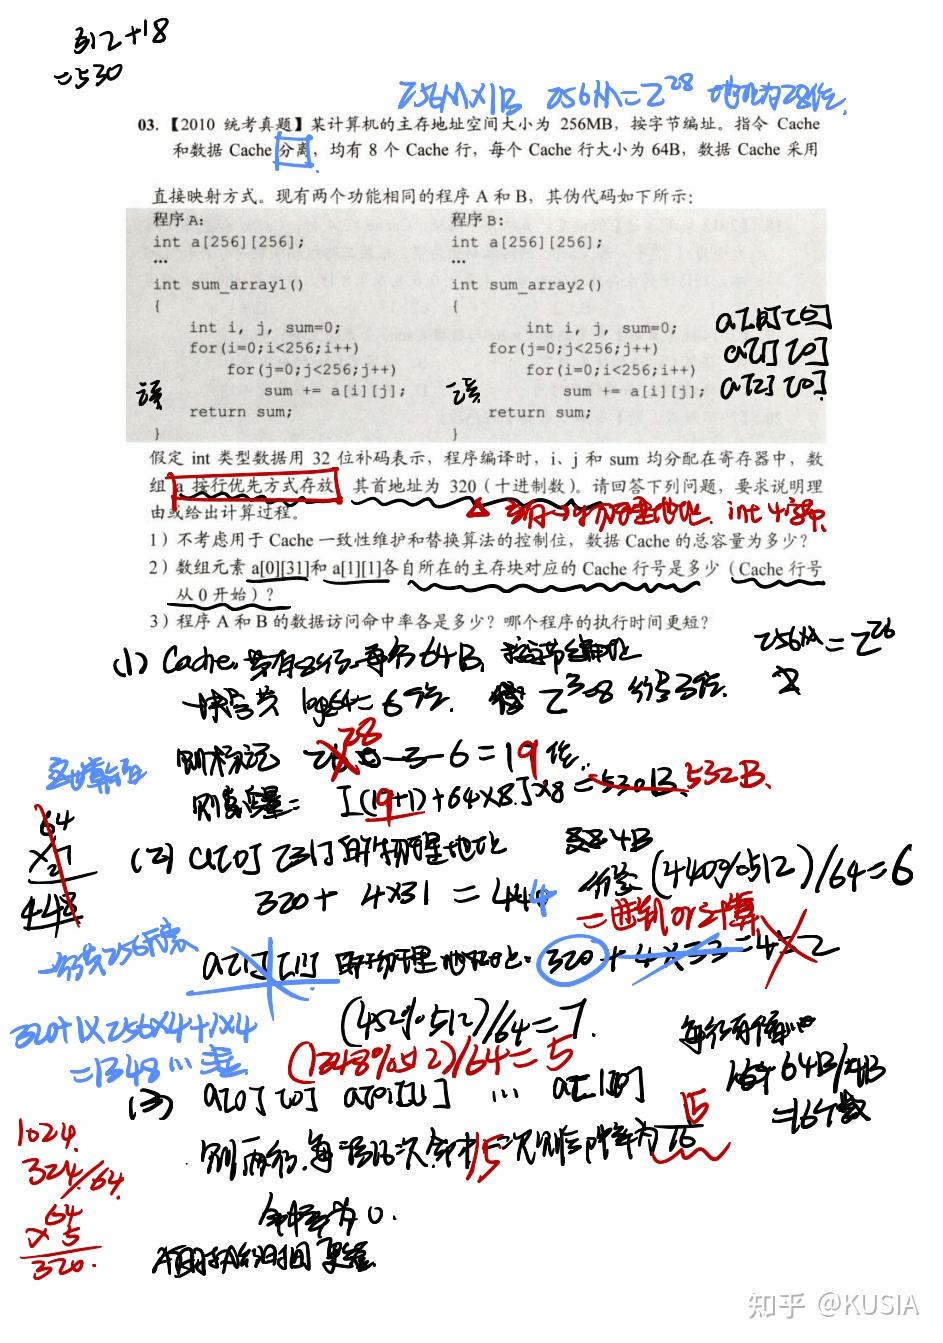 312+18
=530
256M×1B 256M=2^28 地址为28位.
03.【2010 统考真题】某计算机的主存地址空间大小为 256MB，按字节编址。指令 Cache
和数据 Cache 分离，均有 8 个 Cache 行，每个 Cache 行大小为 64B，数据 Cache 采用
直接映射方式。现有两个功能相同的程序 A 和 B，其伪代码如下所示：
程序 A:
int a[256][256];
…
int sum_array1()
{
int i, j, sum=0;
for(i=0;i<256;i++)
for(j=0;j<256;j++)
sum += a[i][j];
return sum;
}
程序 B:
int a[256][256];
…
int sum_array2()
{
int i, j, sum=0;
for(j=0;j<256;j++)
for(i=0;i<256;i++)
sum += a[i][j];
return sum;
}
a[0][0]
a[1][0]
a[2][0]
假定 int 类型数据用 32 位补码表示，程序编译时，i、j 和 sum 均分配在寄存器中，数
组 a 按行优先方式存放，其首地址为 320（十进制数）。请回答下列问题，要求说明理
由或给出计算过程。
int 4字节.
1）不考虑用于 Cache 一致性维护和替换算法的控制位，数据 Cache 的总容量为多少？
2）数组元素 a[0][31]和 a[1][1]各自所在的主存块对应的 Cache 行号是多少（Cache 行号
从 0 开始）？
3）程序 A 和 B 的数据访问命中率各是多少？哪个程序的执行时间更短？
(1) Cache 共有8行 每行64B, 按字节编址
256M=2^26
log64=6位. 2^3=8 行号3位.
则标记 28-3-6=19位.
[(19+1)+64×8]×8=530B 532B.
64
×7
448
(2) a[0][31]的物理地址
320+4×31=444
行号(440%512)/64=6
a[1][1]的物理地址 320+4×33=452
一行共256元素
320+1×256×4+1×4
=1348
(452%512)/64=7.
(1348%512)/64=5
64B/4B
=16个数
(3) a[0][0] a[0][1] …
15
命中率为0.
1024.
324/64.
64
×5
320.
知乎 @KUSIA